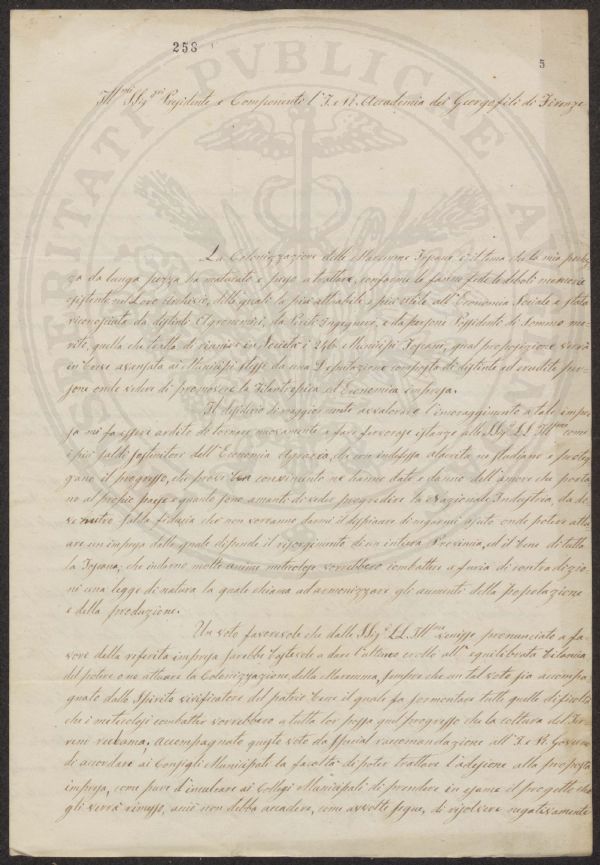 258
5
Ill.mi Sig.ri Presidente e Componenti l'I. e R. Accademia dei Georgofili di Firenze
La Colonizzazione delle Maremme Toscane è il tema che la mia
za da lunga pezza ha maturato e preso a trattare, conforme le fanno fede le deboli memorie
esistente nel Loro Archivio, delle quali la più attuabile e più utile all'Economia Sociale è stata
riconosciuta da distinti Agronomi, da Periti Ingegneri, e da persone Possidenti di sommo me-
rito, quella che tratta di riunire in Società i 246 Municipi Toscani, qual proposizione verrà
in breve avanzata ai Municipi stessi da una Deputazione composta di distinte ed erudite per-
sone onde vedere di promuovere la Filantropica ed Economica impresa.
Il desiderio di maggiormente avvalorare l'incoraggimento a tale impre-
sa mi fa essere ardito di tornare nuovamente a fare fervorose istanze alle SSig.e LL. Ill.me come
i più saldi sostenitori dell'Economia Agraria, che con indefessa alacrità ne studiano e proteg-
gano il progresso, che prove ben convincenti ne hanno date e danno dell'amore che porta-
no al proprio paese e quanto sono amanti di veder progredire la Nazionale Industria, da do-
ver nutrire salda fiducia che non vorranno darmi il dispiacere di negarmi ajuto onde potere attu-
are un impresa dalla quale dipende il risorgimento di un intiera Provincia, ed il bene di tutta
la Toscana; che indarno molte anime meticolose vorrebbero combattere a furia di contradizio-
ni una legge di natura la quale chiama ad armonizzare gli aumenti della Popolazione
e della produzione.
Un voto favorevole che dalle SSig.e LL. Ill.me venisse pronunciato a fa-
vore della referita impresa sarebbe bastevole a dare l'ultimo crollo all'equilibrata bilancia
del potere o no attuare la Colonizzazione della Maremma, sempre che un tal voto sia accompa-
gnato dallo Spirito vivificatore del patrio bene il quale fa sormontare tutte quelle dificoltà
che i meticolosi combatter vorrebbero a tutta lor possa quel progresso che la coltura dei Ter-
reni reclama. Accompagnato questo voto da special raccomandazione all'I. e R. Governo
di accordare ai Consigli Municipali la facoltà di poter trattare l'adesione alla proposta
impresa, come pure d'inculcare ai Collegi Municipali di prendere in esame il progetto che
gli verrà rimesso, anzi non debba accadere, come avvolte segue, di risolvere negativamente